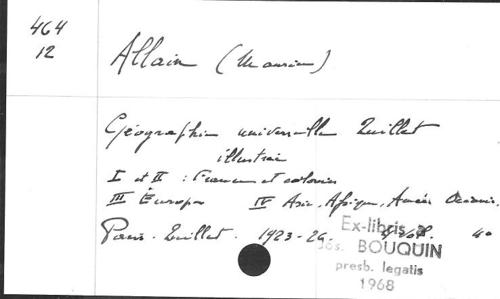 464
12
Allain (Maurice)
Géographie universelle Quillet
illustrée
I et II : France et colonies
III Europe IV Asie, Afrique, Améri Océanie.
Paris. Quillet. 1923-24. 4 vol. 4°
Ex-libris a
Jos. BOUQUIN
presb. legatis
1968